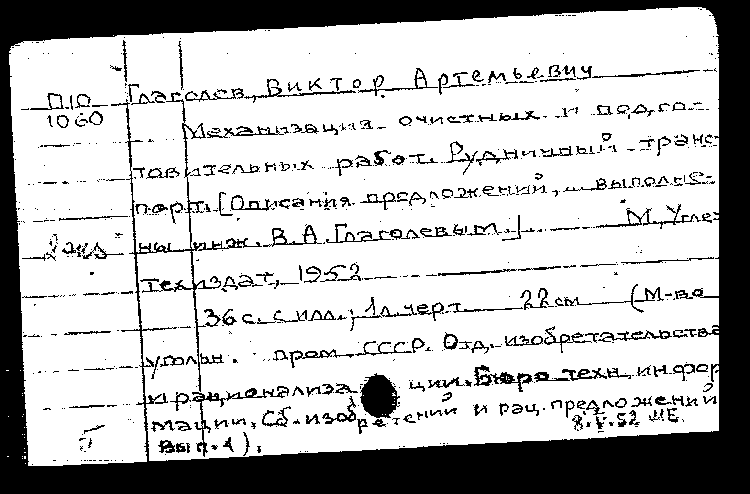 П10 Глаголев, Виктор Артемьевич
1060
Механизация очистных и подго-
товительных работ. Рудничный транс-
порт. [Описания предложений, .. выполне-
2 экз ны инж. В.А.Глаголевым.] М., Угле-
техиздат, 1952
36 с. с илл.; 1 л. черт. 22 см (М-во
угольн. пром. СССР. Отд. изобретательства
и рационализации. Бюро техн. инфор
мации. Сб. изобретений и рац. предложений
Вып. 4). 8.V.52 МЕ.